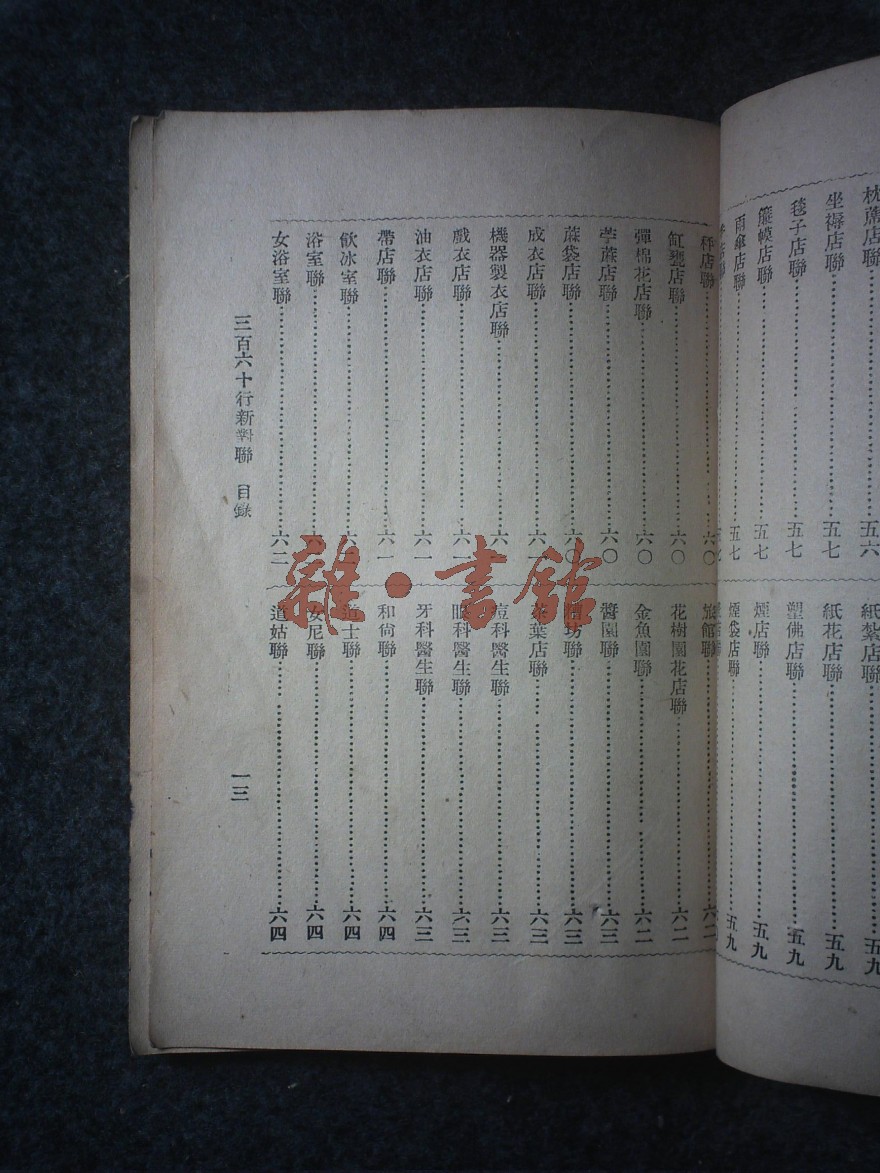 枕蓆店聯……五六
坐褥店聯……五七
毯子店聯……五七
簾幙店聯……五七
雨傘店聯……五七
紙紮店聯……五九
紙花店聯……五九
塑佛店聯……五九
煙店聯……五九
煙袋店聯……五九
秤店聯……六〇
缸甕店聯……六〇
彈棉花店聯……六〇
苧蔴店聯……六〇
蔴袋店聯……六〇
成衣店聯……六一
機器製衣店聯
戲衣店聯……六一
油衣店聯……六一
帶店聯……六一
飲冰室聯
浴室聯
女浴室聯……六二
旅館聯……六二
花樹園花店聯……六二
金魚園聯……六二
醬園聯……六三
坊聯……六三
茶葉店聯……六三
痘科醫生聯……六三
眼科醫生聯……六三
牙科醫生聯……六三
和尚聯……六四
道士聯……六四
女尼聯……六四
道姑聯……六四
三百六十行新對聯 目錄
一三
雜·書館